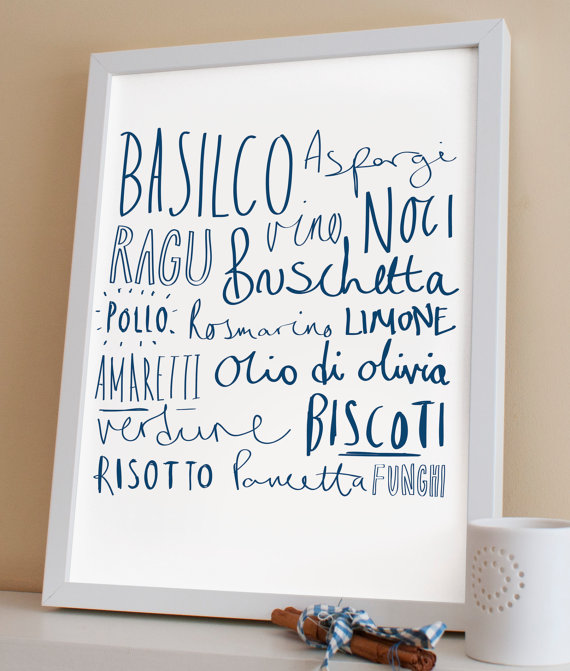 BASILCO Aspargi
vino NOCI
RAGU Bruschetta
POLLO Rosmarino LIMONE
AMARETTI Olio di olivia
verdure BISCOTI
RISOTTO Pancetta FUNGHI